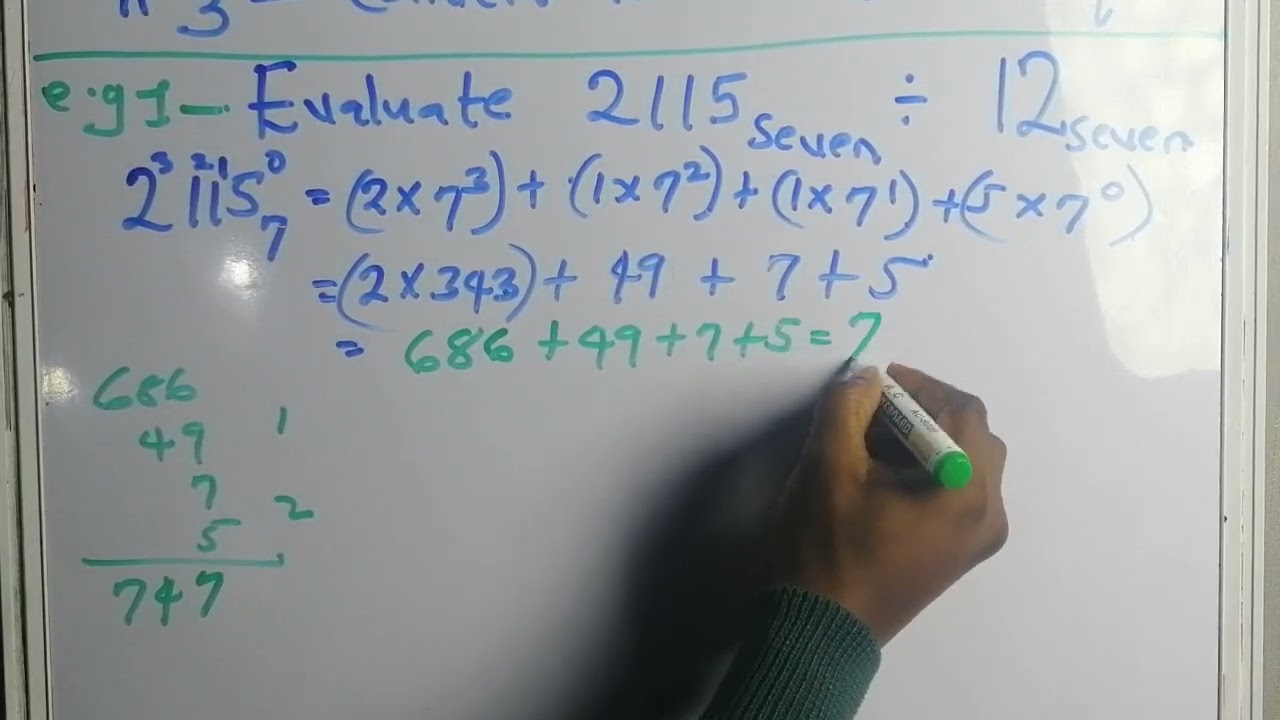 e.g 1 – Evaluate 2115seven ÷ 12seven
2³1²1¹5⁰₇ = (2 × 7³) + (1 × 7²) + (1 × 7¹) + (5 × 7⁰)
= (2 × 343) + 49 + 7 + 5
= 686 + 49 + 7 + 5 = 7
686
49 1
7
5 2
747